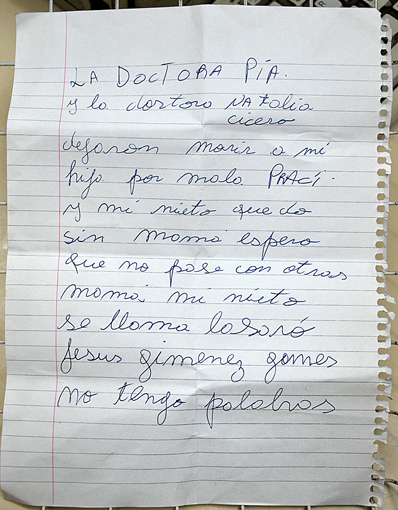 LA DOCTORA PÍA.
y la dortora NATalia
cicero
dejaron morir a mi
hija por mala PRACÍ.
y mi nieto quedo
sin mamá espero
que no pase con otras
mamá mi nieto
se llama lasaró
Jesus gimenez gomes
no tengo palabras